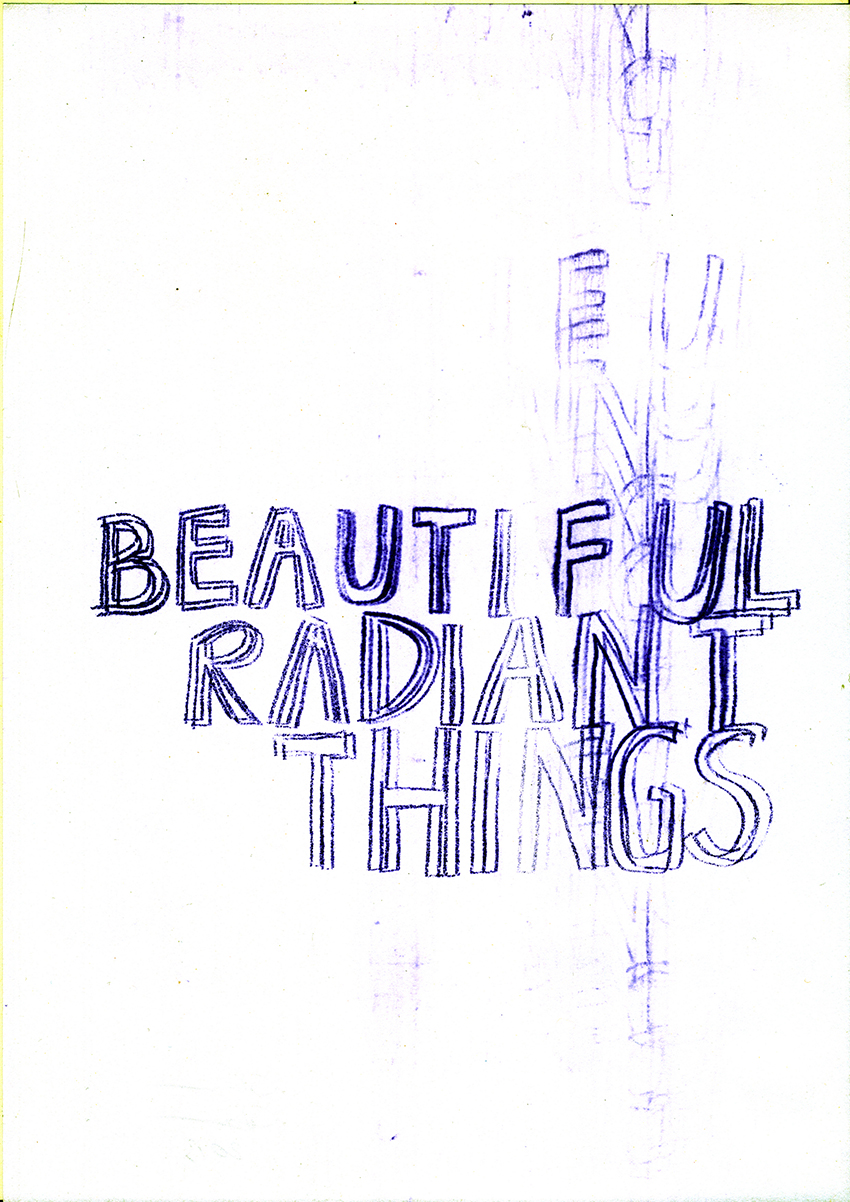 BEAUTIFUL
RADIANT
THINGS